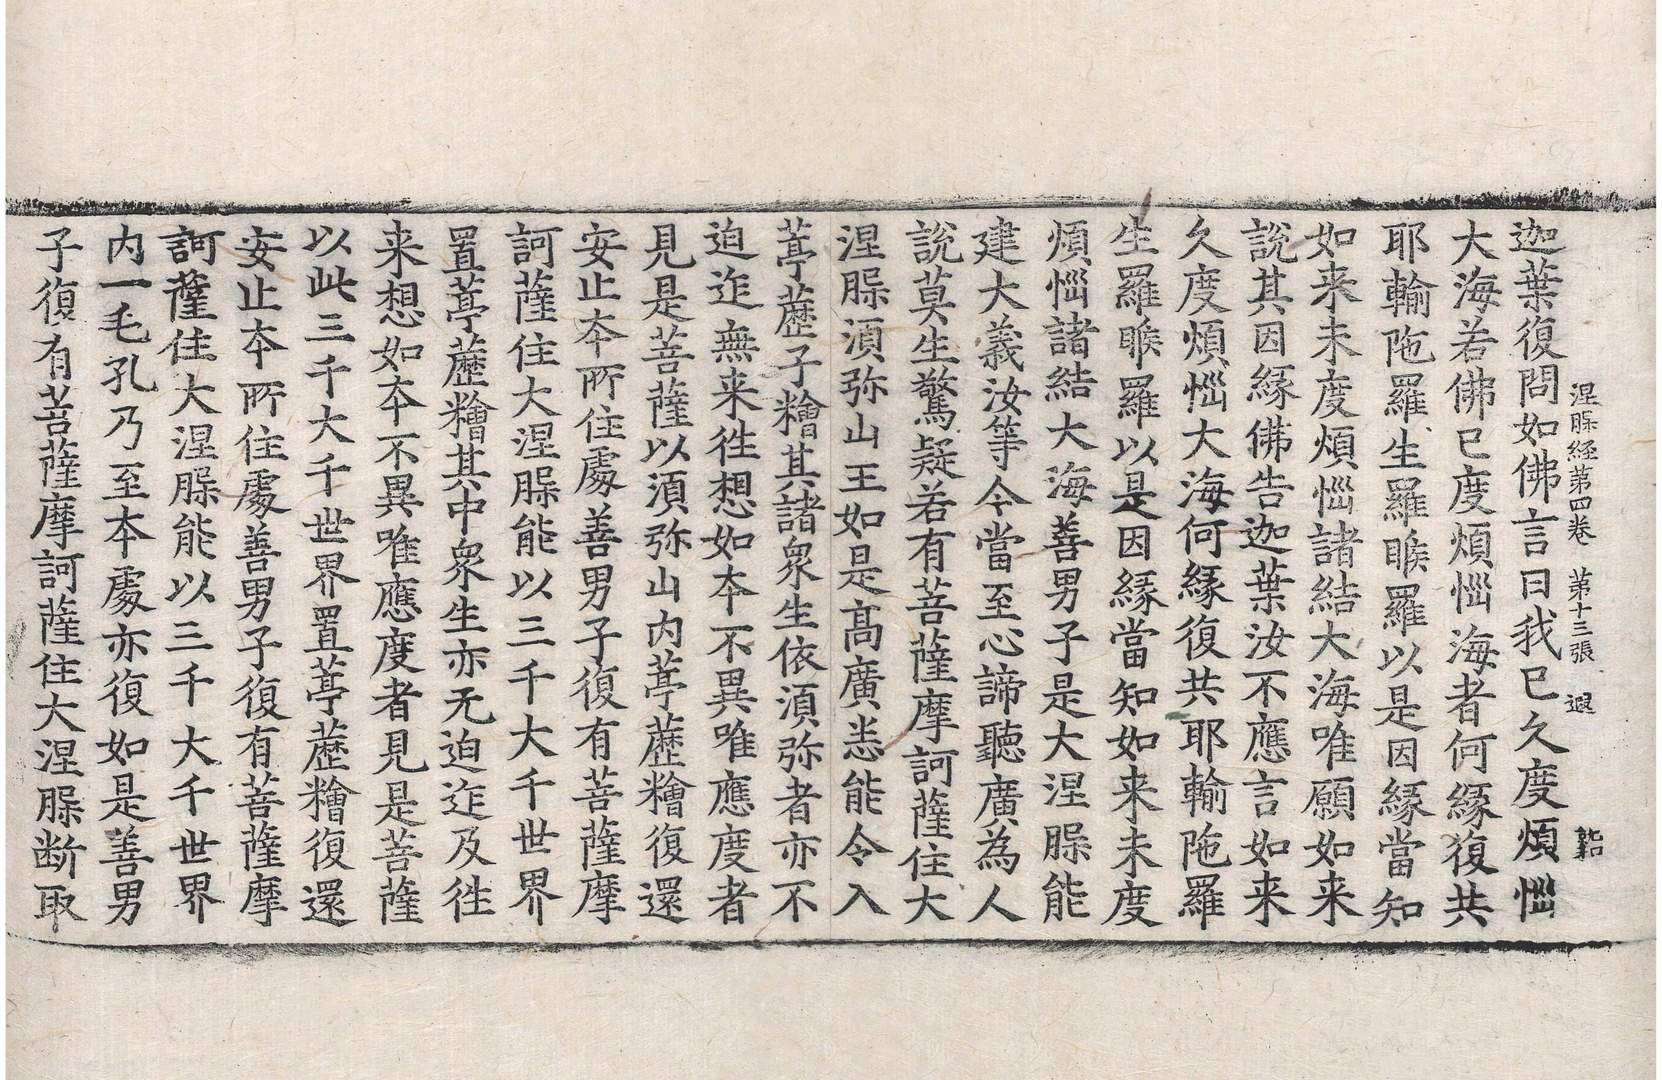 涅槃経第四卷 第十三張 遐
迦葉復問如佛言曰我已久度煩惱
大海若佛已度煩惱海者何縁復共
耶輸陁羅生羅睺羅以是因縁當知
如来未度煩惱諸結大海唯願如来
說其因縁佛告迦葉汝不應言如来
久度煩惱大海何縁復共耶輸陁羅
生羅睺羅以是因縁當知如来未度
煩惱諸結大海善男子是大涅槃能
建大義汝等今當至心諦聽廣為人
說莫生驚疑若有菩薩摩訶薩住大
涅槃湏弥山王如是髙廣悉能令入
葶藶子糩其諸衆生依湏弥者亦不
迫迮無来徃想如夲不異唯應度者
見是菩薩以湏弥山内葶藶糩復還
安止夲所住處善男子復有菩薩摩
訶薩住大涅槃能以三千大千世界
置葶藶糩其中衆生亦无迫迮及徃
来想如夲不異唯應度者見是菩薩
以此三千大千世界置葶藶糩復還
安止夲所住處善男子復有菩薩摩
訶薩住大涅槃能以三千大千世界
内一毛孔乃至本處亦復如是善男
子復有菩薩摩訶薩住大涅槃断取